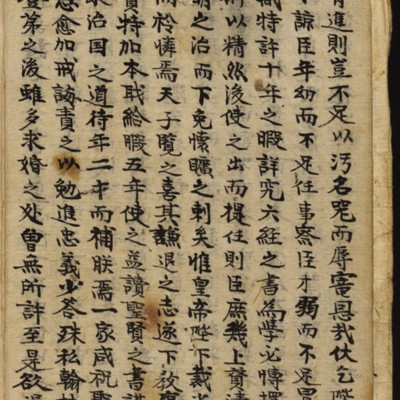 進則豈不足以汚名咒而辱害恩哉伏乞陛
諒臣年幼而不足任事察臣才弱而不足
職特許十年之暇詳究六經之書爲學必
所以精然後使之出而授任則臣庶幾上賛清
朝之治而下免懷曠之刺矣惟皇帝陛下裁
而於憐焉天子覽之善其謙退之志遂下教
資特加本職給暇五年使之益讀聖賢之書
治國之道待年二十而補朕焉一家咸祝
愈加戒誨責之以勉進忠義少答殊私翰林
登第之後雖多求婚之処曾無所許至是欲